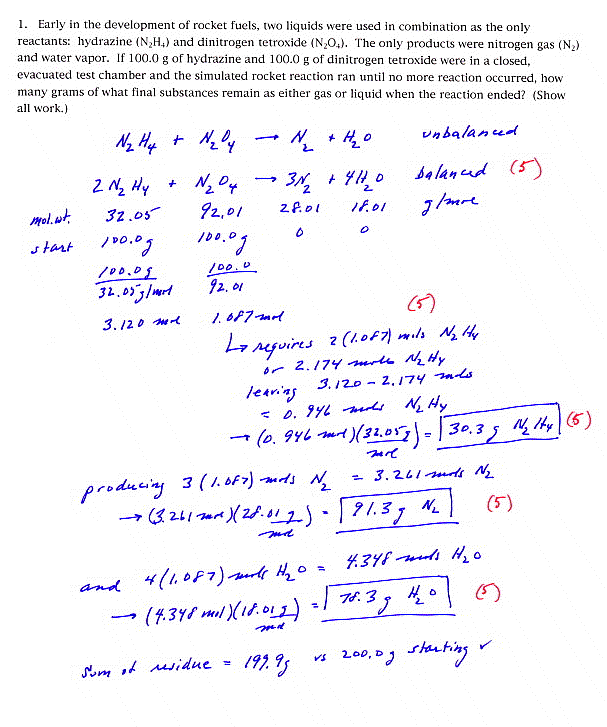 1. Early in the development of rocket fuels, two liquids were used in combination as the only
reactants: hydrazine (N₂H₄) and dinitrogen tetroxide (N₂O₄). The only products were nitrogen gas (N₂)
and water vapor. If 100.0 g of hydrazine and 100.0 g of dinitrogen tetroxide were in a closed,
evacuated test chamber and the simulated rocket reaction ran until no more reaction occurred, how
many grams of what final substances remain as either gas or liquid when the reaction ended? (Show
all work.)
N₂H₄ + N₂O₄ → N₂ + H₂O unbalanced
2 N₂H₄ + N₂O₄ → 3N₂ + 4H₂O balanced (5)
mol.wt. 32.05 92.01 28.01 18.01 g/mole
start 100.0g 100.0g 0 0
100.0g 100.0
32.05g/mol 92.01
3.120 mol 1.087 mol (5)
↳ requires 2(1.087) mols N₂H₄
or 2.174 mole N₂H₄
leaving 3.120 - 2.174 mols
= 0.946 mols N₂H₄
→ (0.946 mol)(32.05g/mol) = 30.3g N₂H₄ (5)
producing 3(1.087) mols N₂ = 3.261 mols N₂
→ (3.261 mol)(28.01 g/mol) = 91.3g N₂ (5)
and 4(1.087) mols H₂O = 4.348 mols H₂O
→ (4.348 mol)(18.01 g/mol) = 78.3g H₂O (5)
Sum of residue = 199.9g vs 200.0g starting ✓